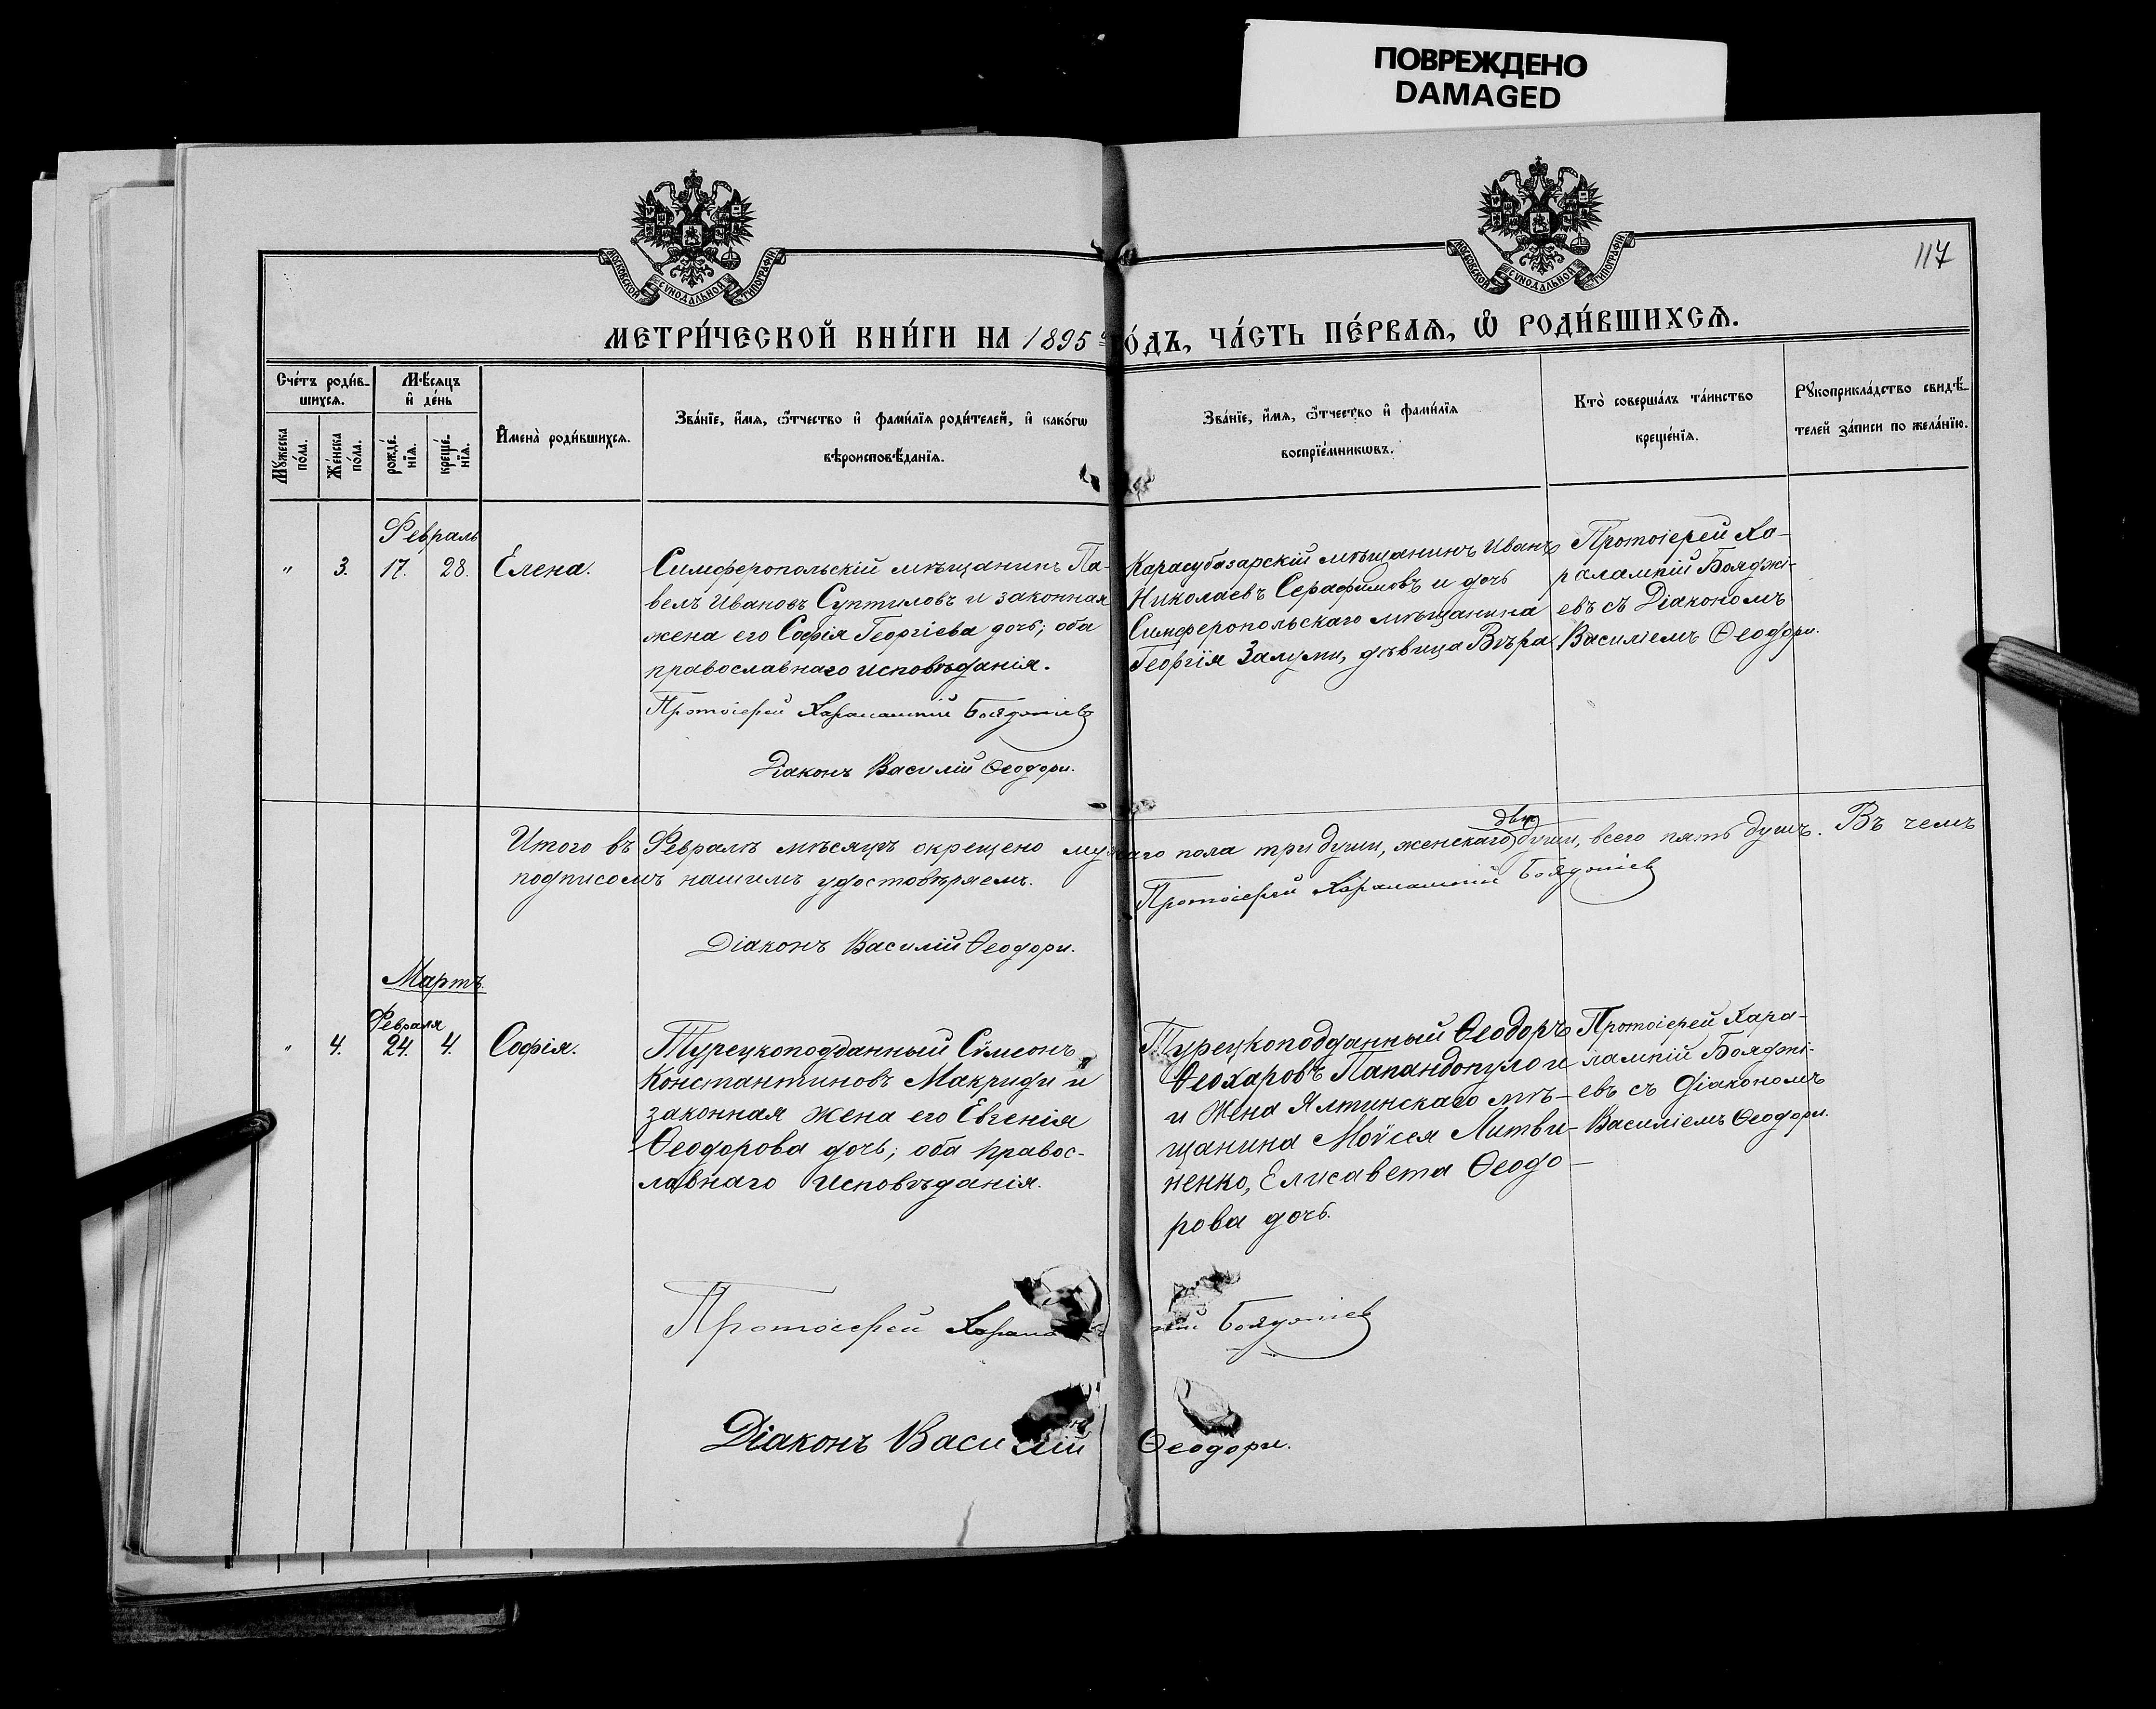 ПОВРЕЖДЕНО
DAMAGED
МОСКОВСКОЙ СѴНОДАЛЬНОЙ ТИПОГРАФІИ
МОСКОВСКОЙ СѴНОДАЛЬНОЙ ТИПОГРАФІИ
117
МЕТРИ́ЧЕСКОЙ КНИ́ГИ НА 1895 ГО́ДЪ, ЧА́СТЬ ПЕ́РВАѦ, Ѡ҆ РОДИ́ВШИХСѦ.
Сче́тъ роди́в-
шихсѧ.
Мѣ́сѧцъ
и҆ де́нь
Мꙋ́жеска по́ла.
Же́нска по́ла.
рожде́нїѧ.
креще́нїѧ.
И҆мена̀ роди́вшихсѧ.
Зва́нїе, и҆́мѧ, ѻ҆́тчество и҆ фами́лїѧ роди́телей, и҆ како́гѡ
вѣроисповѣ́данїѧ.
Зва́нїе, и҆́мѧ, ѻ҆́тчество и҆ фами́лїѧ
воспрїе́мникѡвъ.
Кто̀ соверша́лъ та́инство
креще́нїѧ.
Рꙋкоприкла́дство свидѣ́-
телей за́писи по жела́нїю.
Февраль
" 3. 17. 28. Елена.
Симферопольскій мѣщанинъ Па-
велъ Ивановъ Суптиловъ и законная
жена его Софія Георгіева дочь; оба
православнаго исповѣданія.
Протоіерей Харалампій Бояджіев
Діаконъ Василій Ѳеодори.
Карасубазарскій мѣщанинъ Иванъ
Николаевъ Серафимовъ и дочь
Симферопольскаго мѣщанина
Георгія Залуми, дѣвица Вѣра
Протоіерей Ха-
ралампій Бояджі-
евъ съ Діакономъ
Василіемъ Ѳеодори.
Итого въ Февралѣ мѣсяцѣ окрещено мужскаго пола три души, женскаго двѣ души, всего пять душъ. Въ чемъ
подписомъ нашимъ удостовѣряемъ.
Протоіерей Харалампій Бояджіев
Діаконъ Василій Ѳеодори.
Мартъ.
Февраля
" 4. 24. 4. Софія.
Турецкоподданный Сѵмеонъ
Константиновъ Макриди и
законная жена его Евгенія
Ѳеодорова дочь; оба правос-
лавнаго исповѣданія.
Турецкоподданный Ѳеодоръ
Ѳеохаровъ Папандопуло и
и жена Ялтинскаго мѣ-
щанина Моѵсея Литви-
ненко, Елисавета Ѳеодо-
рова дочь.
Протоіерей Хара-
лампій Бояджі-
евъ съ Діакономъ
Василіемъ Ѳеодори.
Протоіерей Харалампій Бояджіев
Діаконъ Василій Ѳеодори.